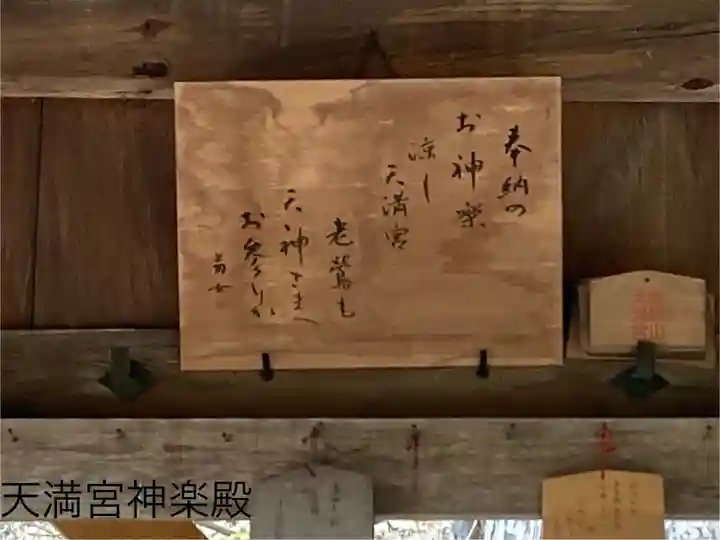 奉納の
お神楽
涼し
天満宮
老鶯も
天神さまへ
お参りか
天満宮神楽殿